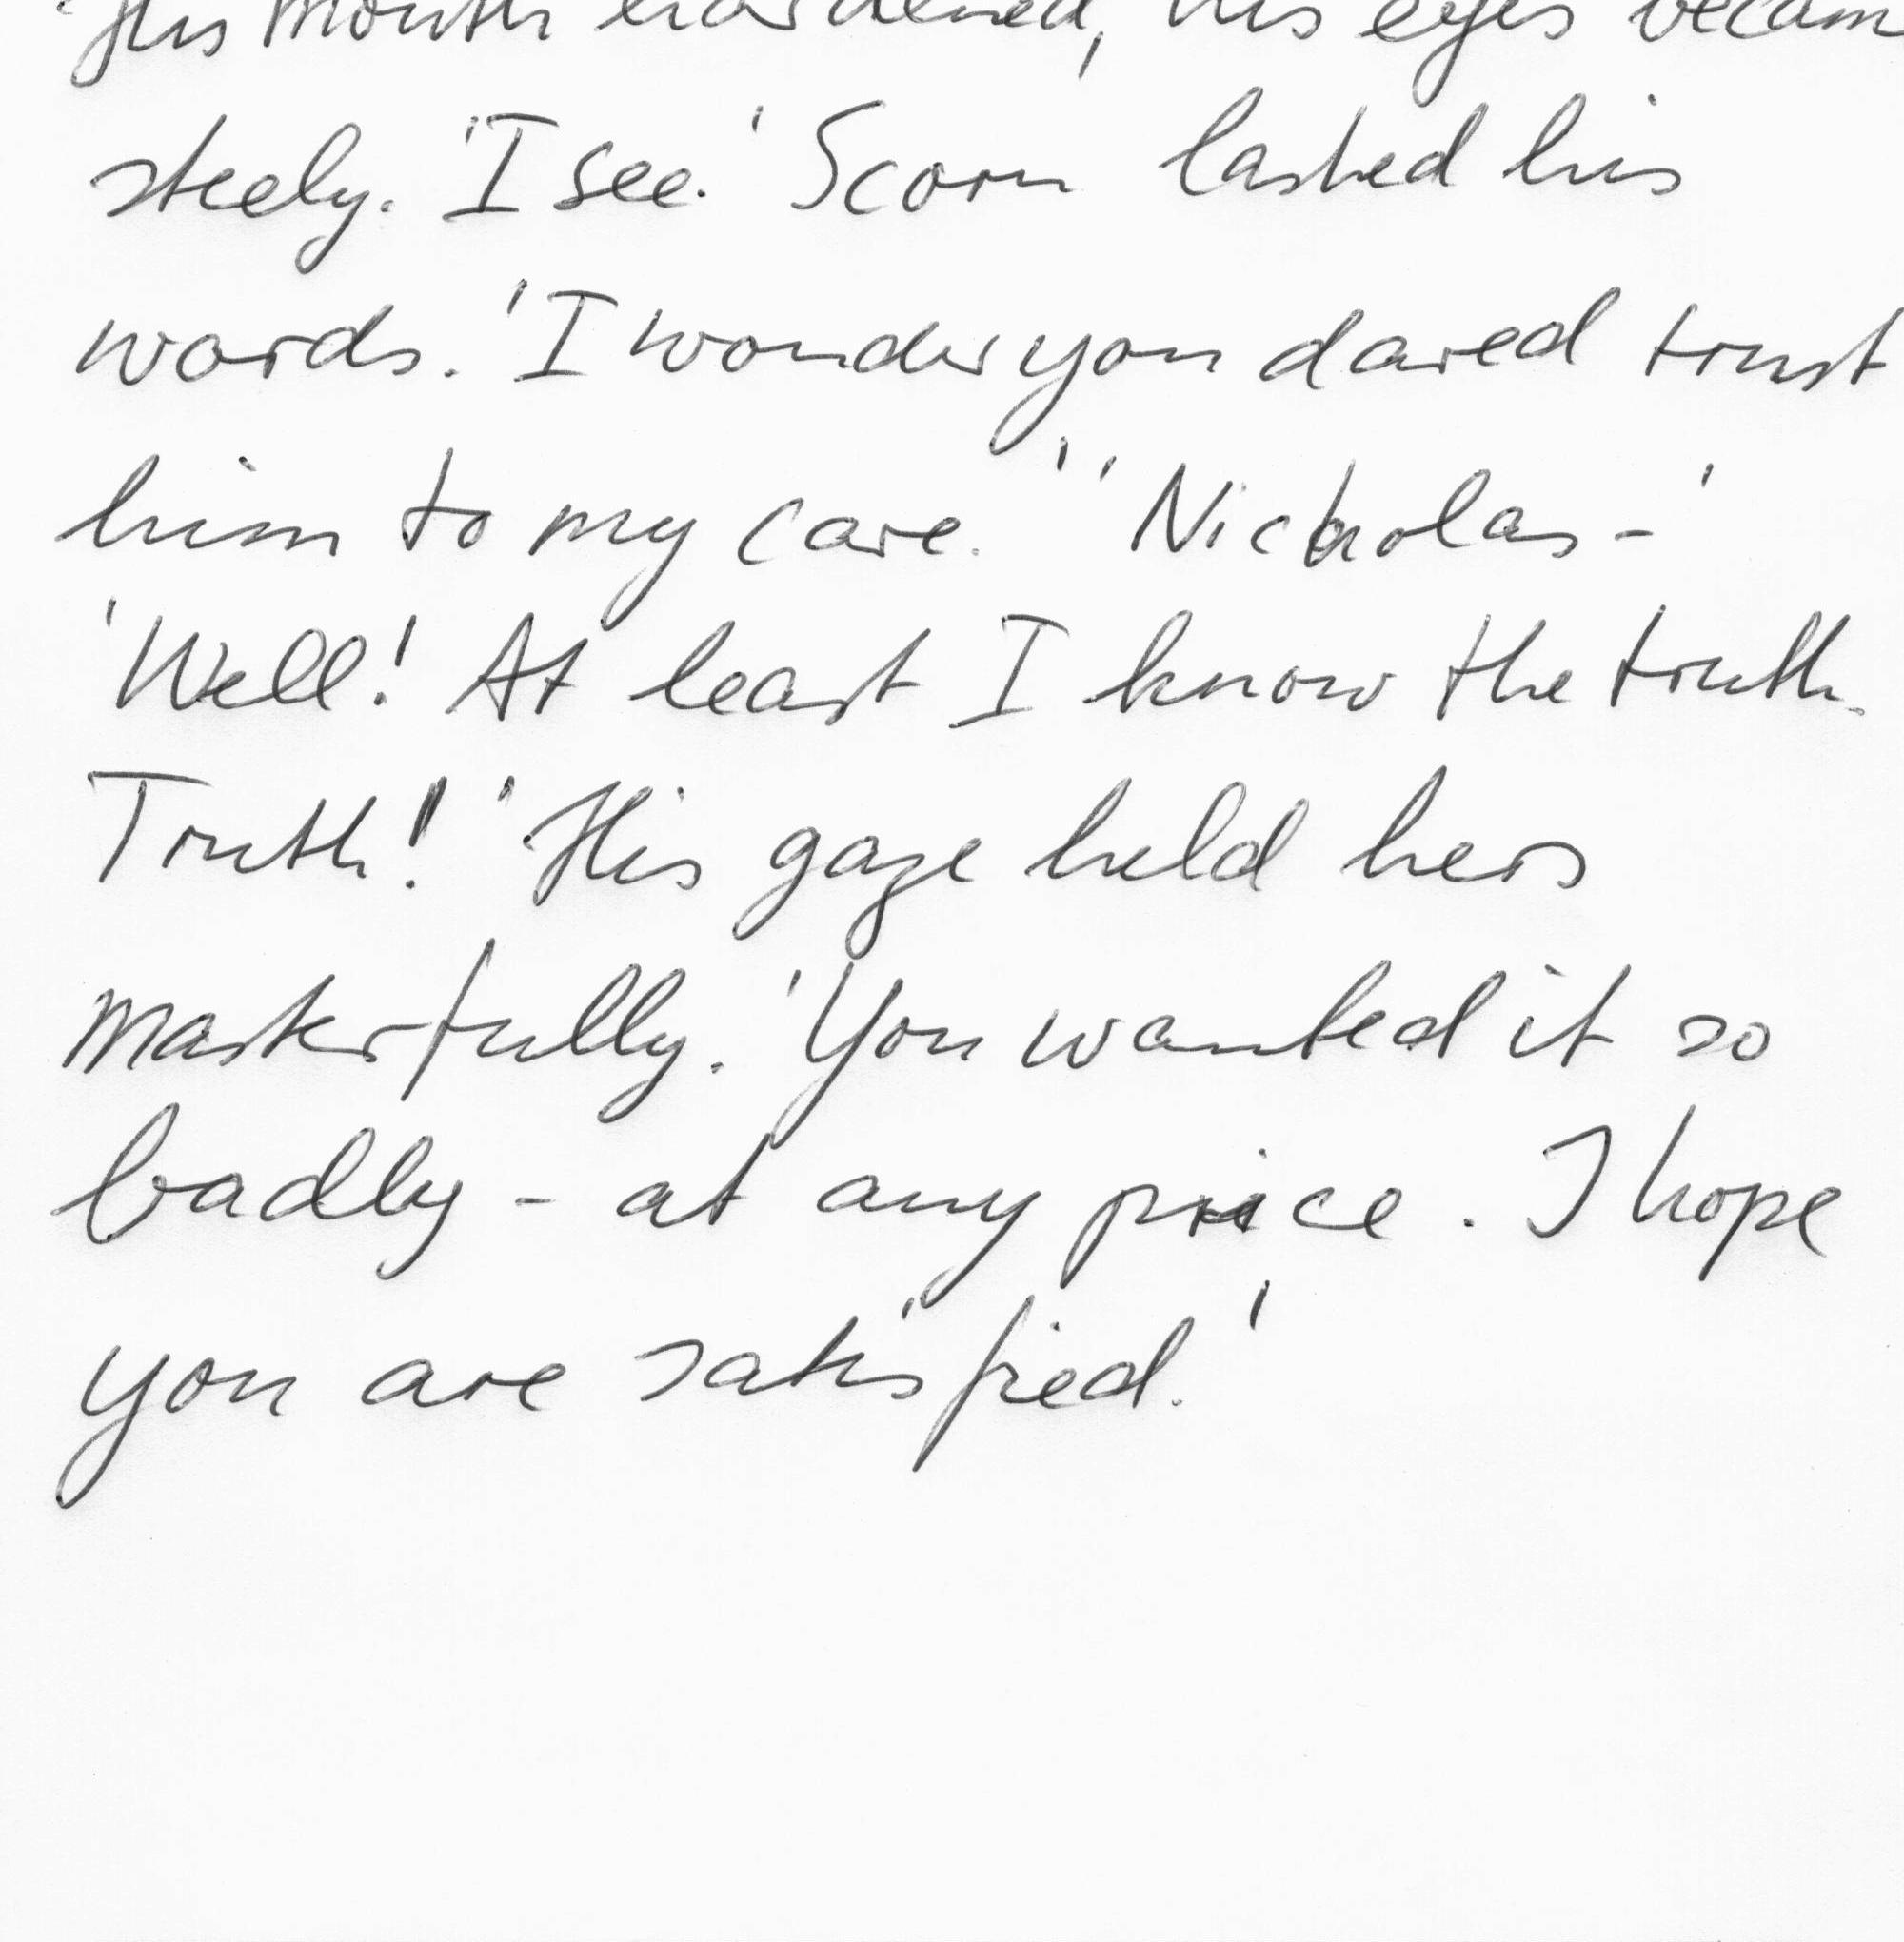 His mouth hardened, his eyes becam
steely. 'I see.' Scorn lashed his
words. 'I wonder you dared trust
him to my care.' 'Nicholas-'
'Well! At least I know the truth.
Truth!' His gaze held hers
masterfully. 'You wanted it so
badly - at any price. I hope
you are satisfied.'